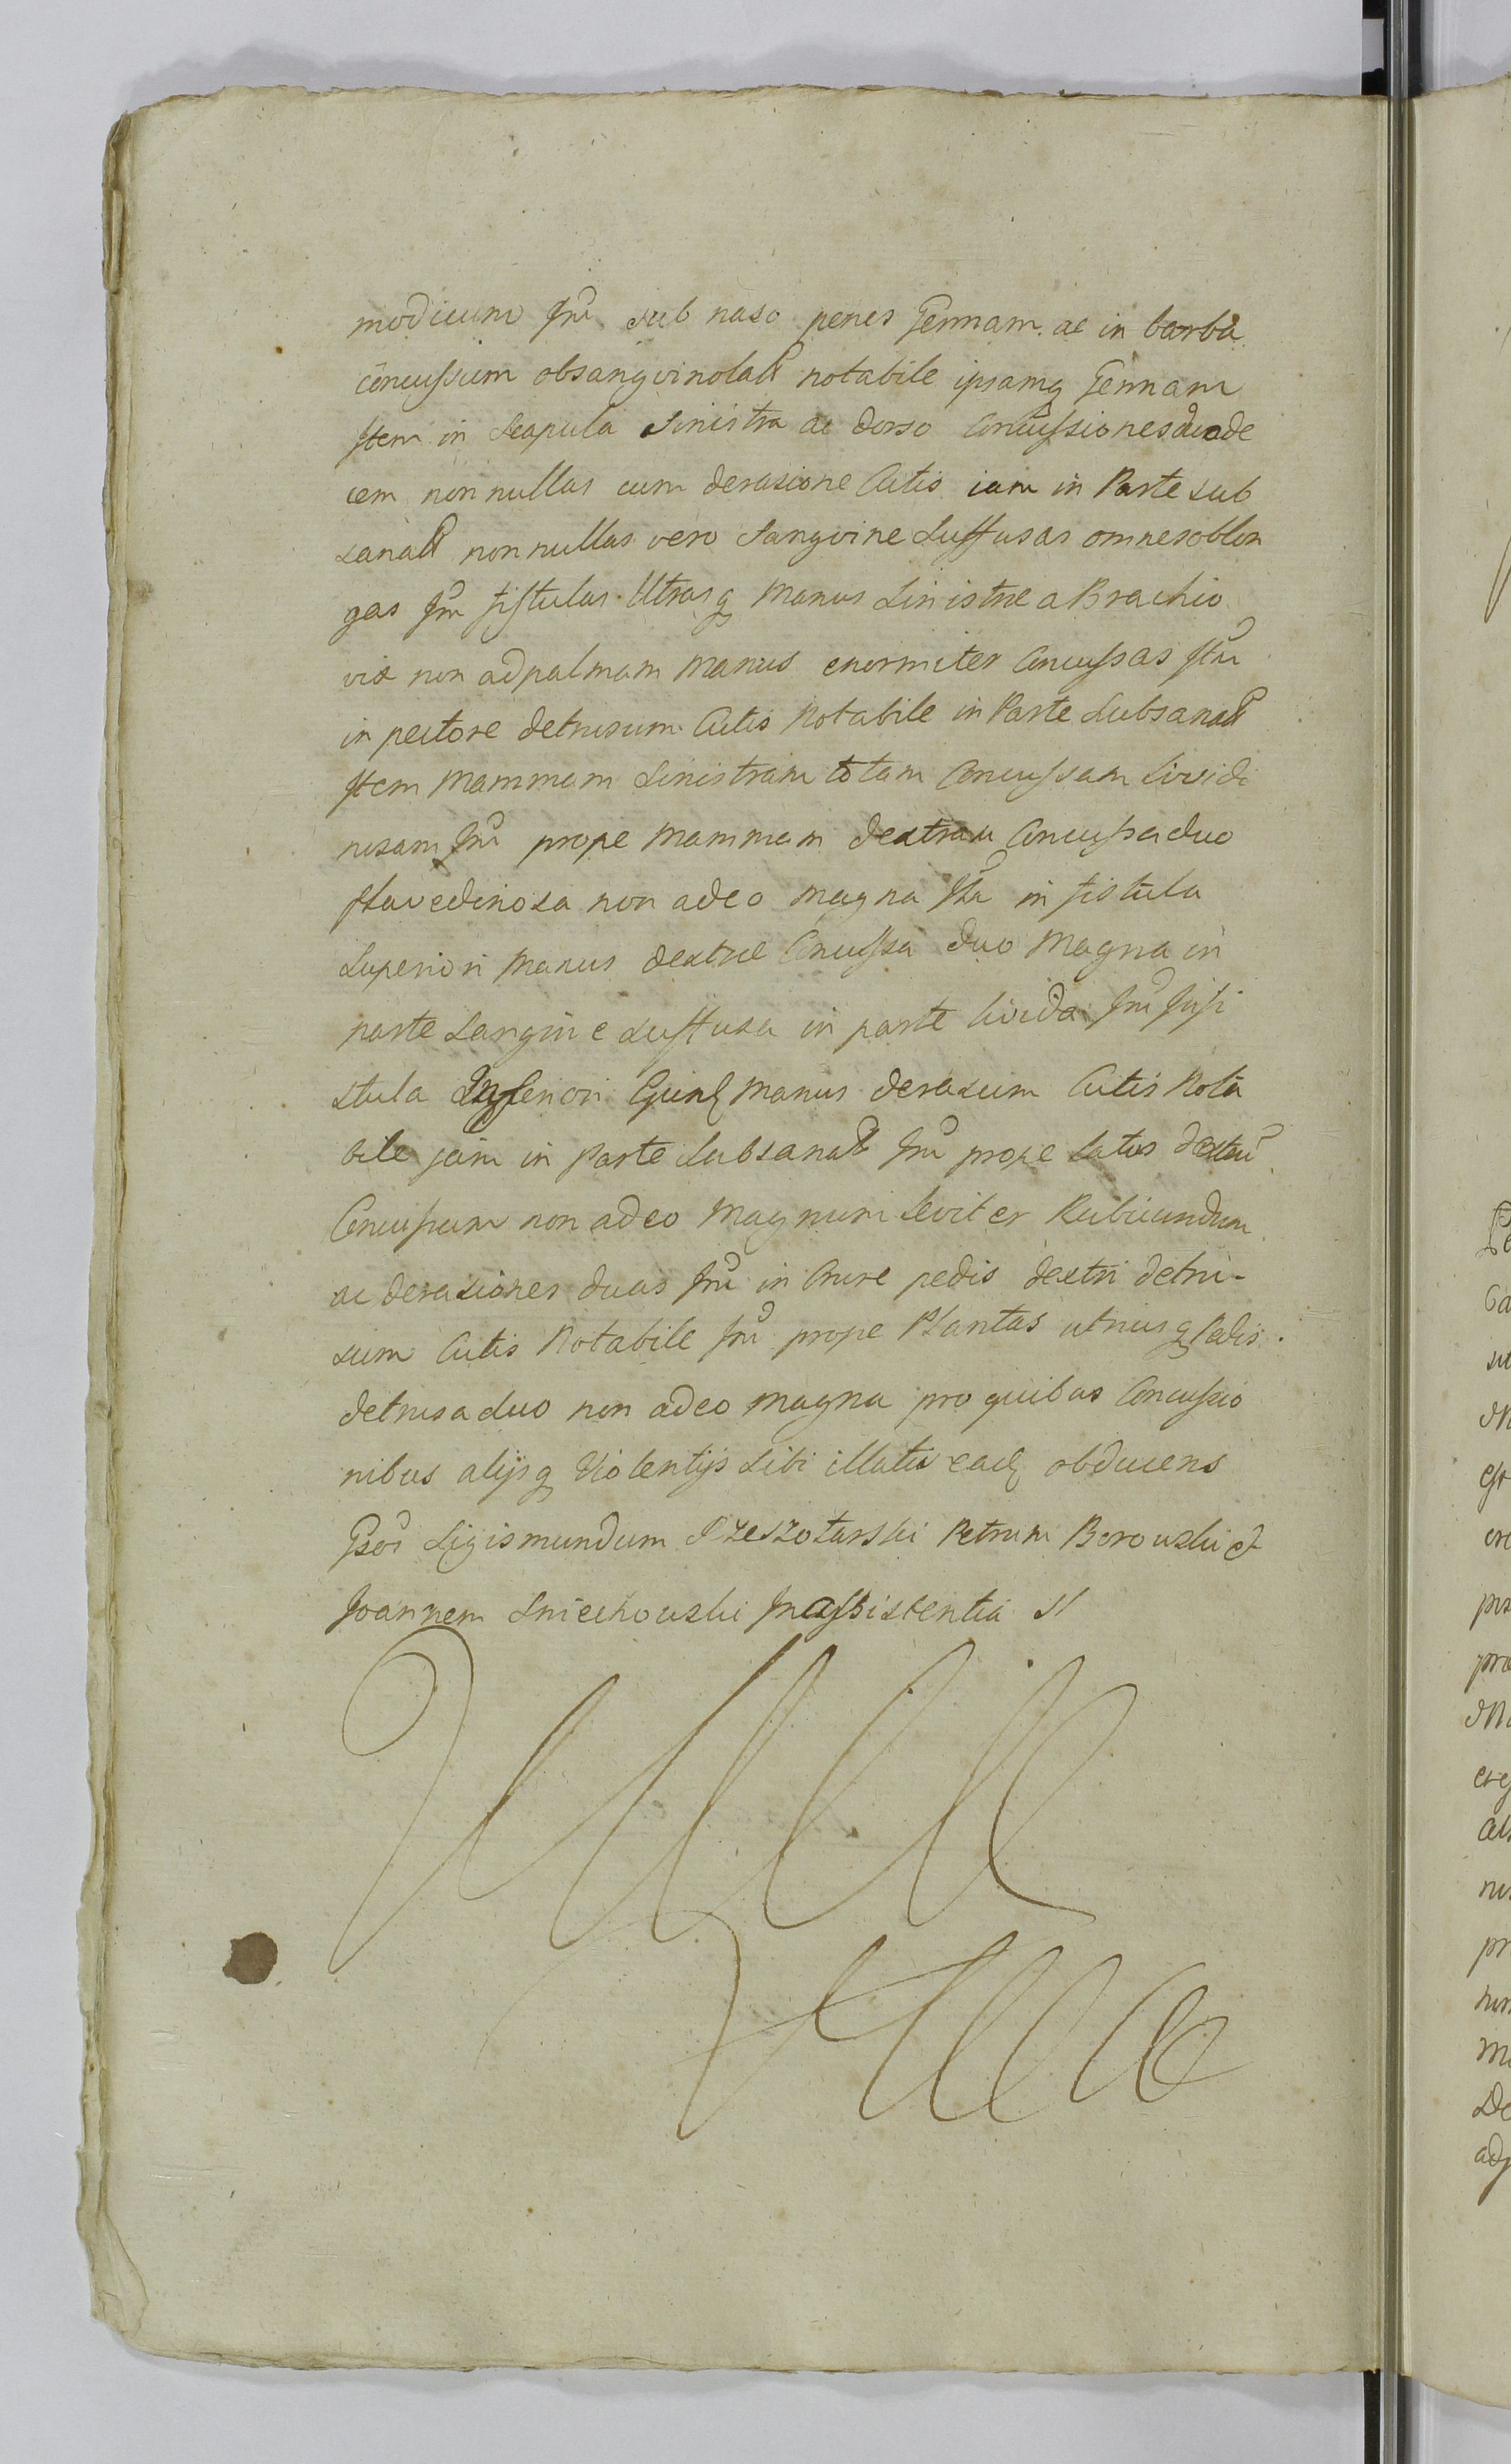 modicum Itm̃ sub naso penes Gennam. ac in barba
concussum obsangvinolatt notabile ipsamq Gennam
Item in Scapula Sinistra ac dorso Concussiones duode
cem non nullas cum derasione Cutis iam in Parte sub
sanatt non nullas vero Sangvine Suffusas omnes oblon
gas Itm̃ fistulas Utrasq Manus Sinistre a Brachio
vix non ad palmam Manus enormiter Concussas Itm̃
in pectore detrusum Cutis Notabile in Parte Subsanatt
Item Mammam Sinistram totam Concussam Lividi
nosam Itm̃ prope Mammam dextram Concussa duo
flavedinosa non adeo magna Itm̃ in fistula
Superiori Manus dextre Concussa duo Magna in
parte Sangvine suffusa in parte livida Itm̃ In fi
stula Inferiori Manus derasum Cutis Nota
bile jam in Parte Subsanatt Itm̃ prope latus dextrũ
Concussum non adeo Magnum leviter Rubicundum
ac derasiones duas Itm̃ in Crure pedis dextri detru-
sum Cutis Notabile Itm̃ prope Plantas utriusq Pedis.
detrusa duo non adeo magna pro quibus Concussio
nibus alijsq Violentijs Sibi illatis obducens
Sigismundum Rzeszotarski Petrum Borowski et
Joannem Sniechowski In assistentia